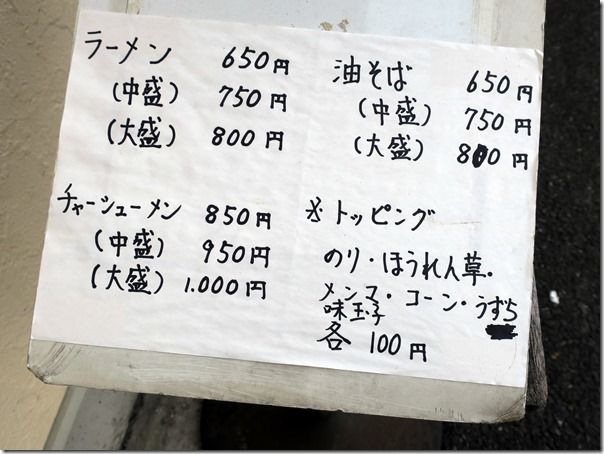 ラーメン 650円
(中盛) 750円
(大盛) 800円
油そば 650円
(中盛) 750円
(大盛) 800円
チャーシューメン 850円
(中盛) 950円
(大盛) 1.000円
※トッピング
のり・ほうれん草・
メンマ・コーン・うずら
味玉子
各 100円